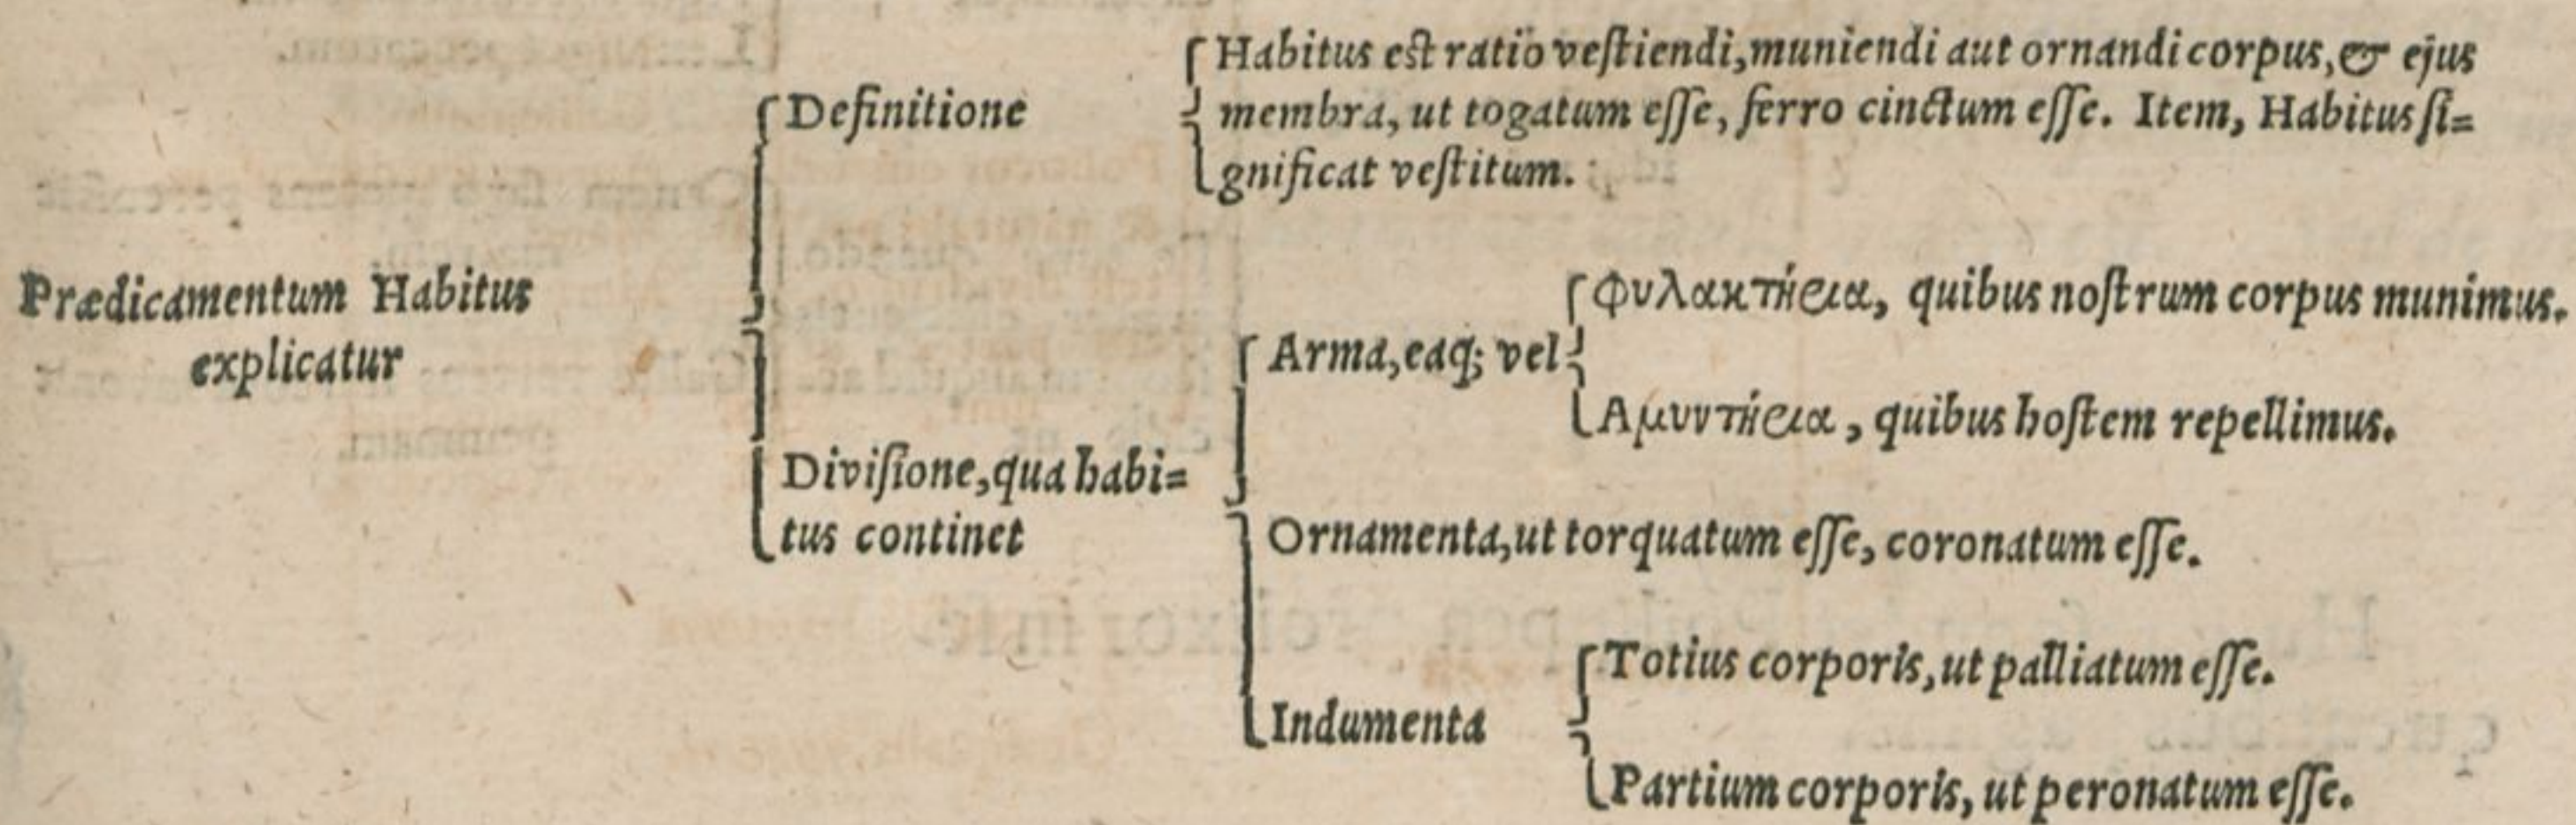 Prædicamentum Habitus
explicatur
Definitione
Habitus est ratio veſtiendi, muniendi aut ornandi corpus, & ejus
membra, ut togatum eſſe, ferro cinctum eſſe. Item, Habitus ſi=
gnificat veſtitum.
Diviſione, qua habi=
tus continet
Arma, eaq; vel
Φυλακτήρια, quibus noſtrum corpus munimus.
Αμυντήρια, quibus hoſtem repellimus.
Ornamenta, ut torquatum eſſe, coronatum eſſe.
Indumenta
Totius corporis, ut palliatum eſſe.
Partium corporis, ut peronatum eſſe.